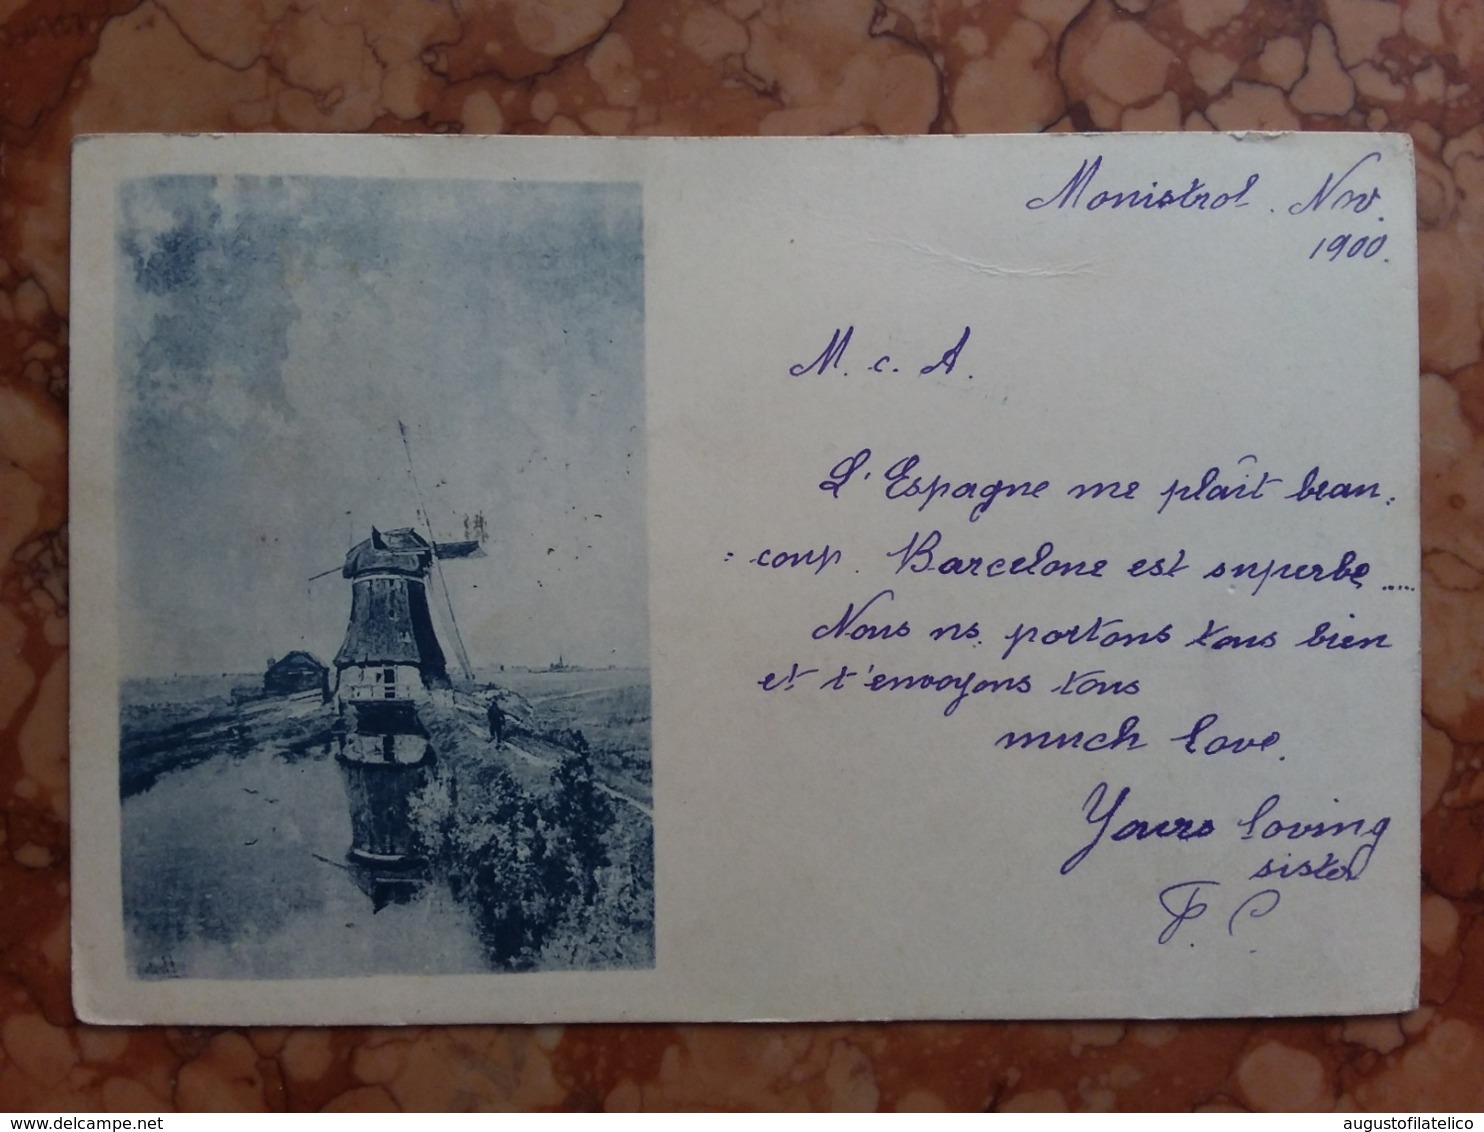 Monistrol. Nov.
1900.
M. c. A.
L'Espagne me plaît beau=
=coup. Barcelone est superbe .....
Nous ns. portons tous bien
et t'envoyons tous
much love.
Yours loving
sister
F. C.
www.delcampe.net
augustofilatelico